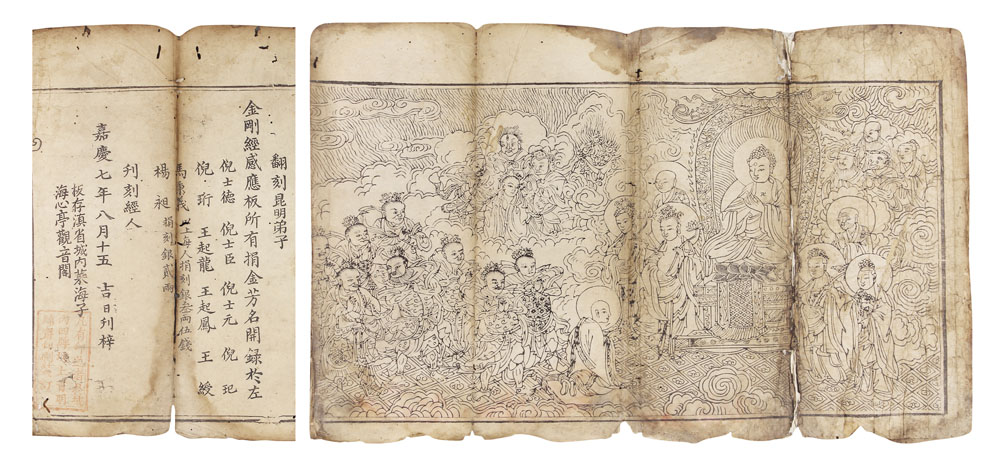 翻刻昆明弟子
金剛經感應板所有捐金芳名開録於左
倪士德 倪士臣 倪士元 倪 玘
倪 珩 王起龍 王起鳳 王 綬
以上每人捐刻銀叁兩伍錢
楊 昶 捐刻銀貳兩
刋刻經人
嘉慶七年八月十五 吉日刋梓
板存滇省城内菜海子
海心亭觀音閣